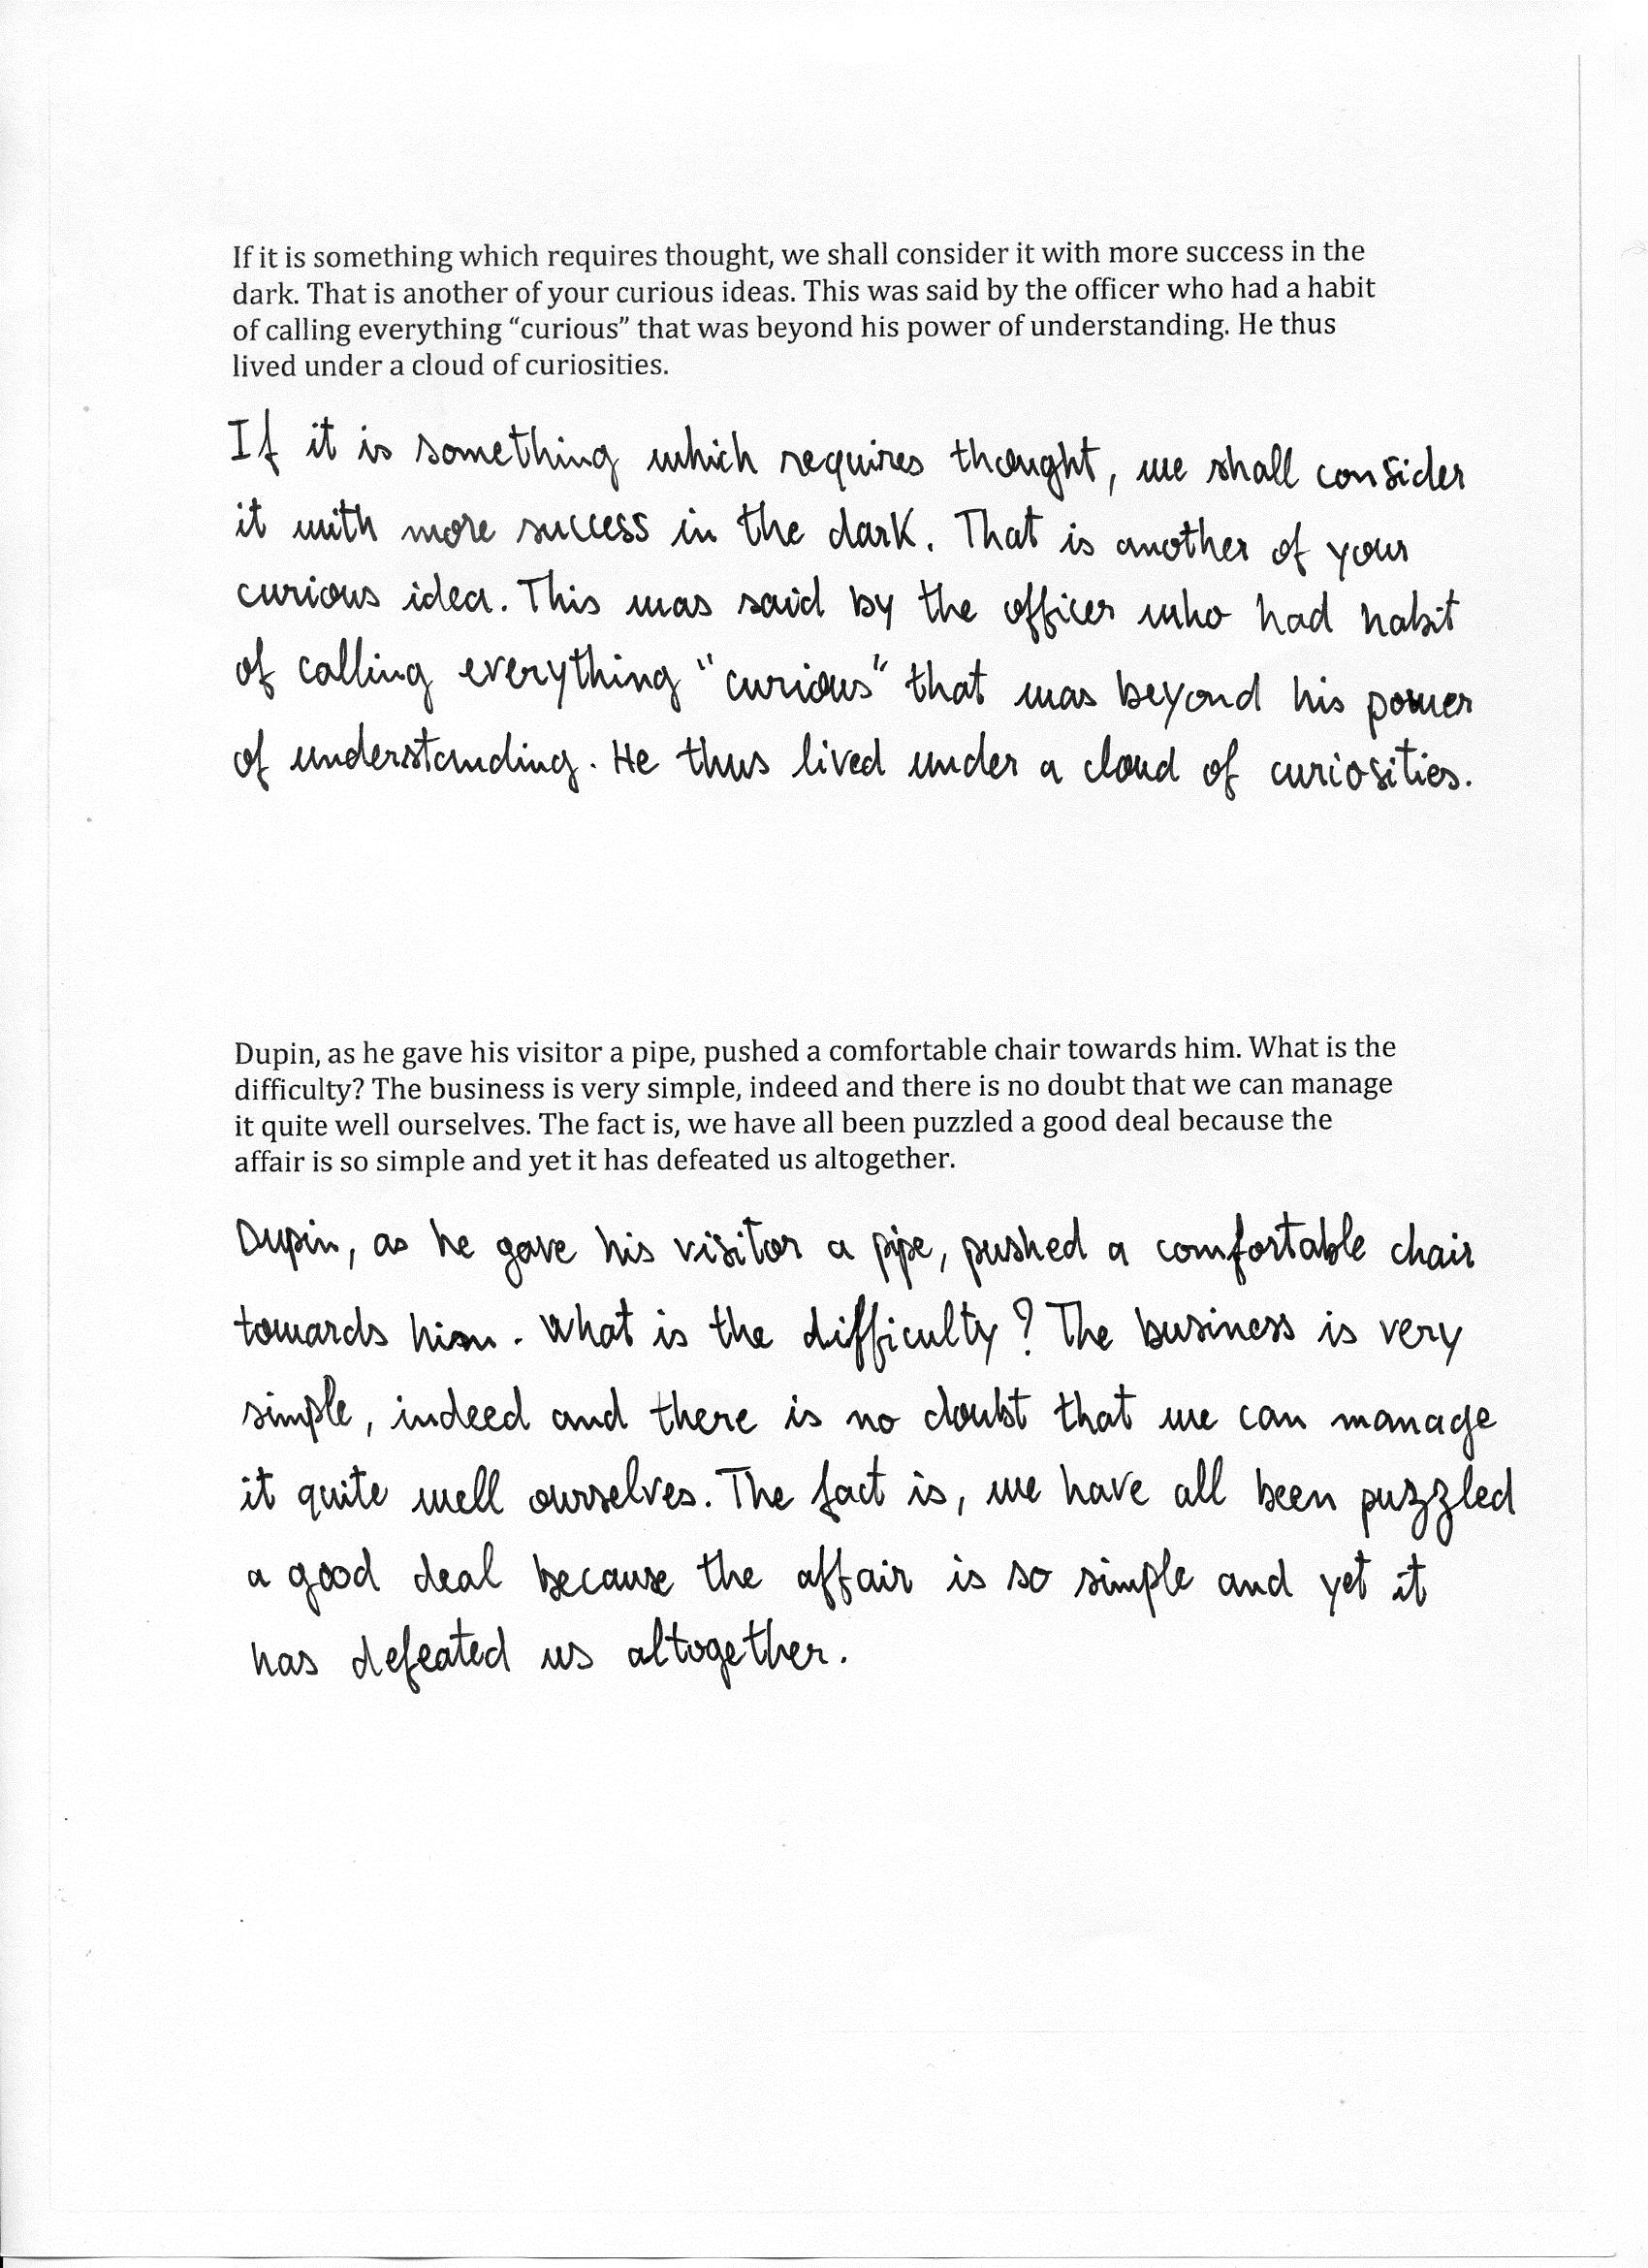 If it is something which requires thought, we shall consider it with more success in the
dark. That is another of your curious ideas. This was said by the officer who had a habit
of calling everything “curious” that was beyond his power of understanding. He thus
lived under a cloud of curiosities.
If it is something which requires thought, we shall consider
it with more success in the dark. That is another of your
curious idea. This was said by the officer who had habit
of calling everything "curious" that was beyond his power
of understanding. He thus lived under a cloud of curiosities.
Dupin, as he gave his visitor a pipe, pushed a comfortable chair towards him. What is the
difficulty? The business is very simple, indeed and there is no doubt that we can manage
it quite well ourselves. The fact is, we have all been puzzled a good deal because the
affair is so simple and yet it has defeated us altogether.
Dupin, as he gave his visitor a pipe, pushed a comfortable chair
towards him. What is the difficulty? The business is very
simple, indeed and there is no doubt that we can manage
it quite well ourselves. The fact is, we have all been puzzled
a good deal because the affair is so simple and yet it
has defeated us altogether.